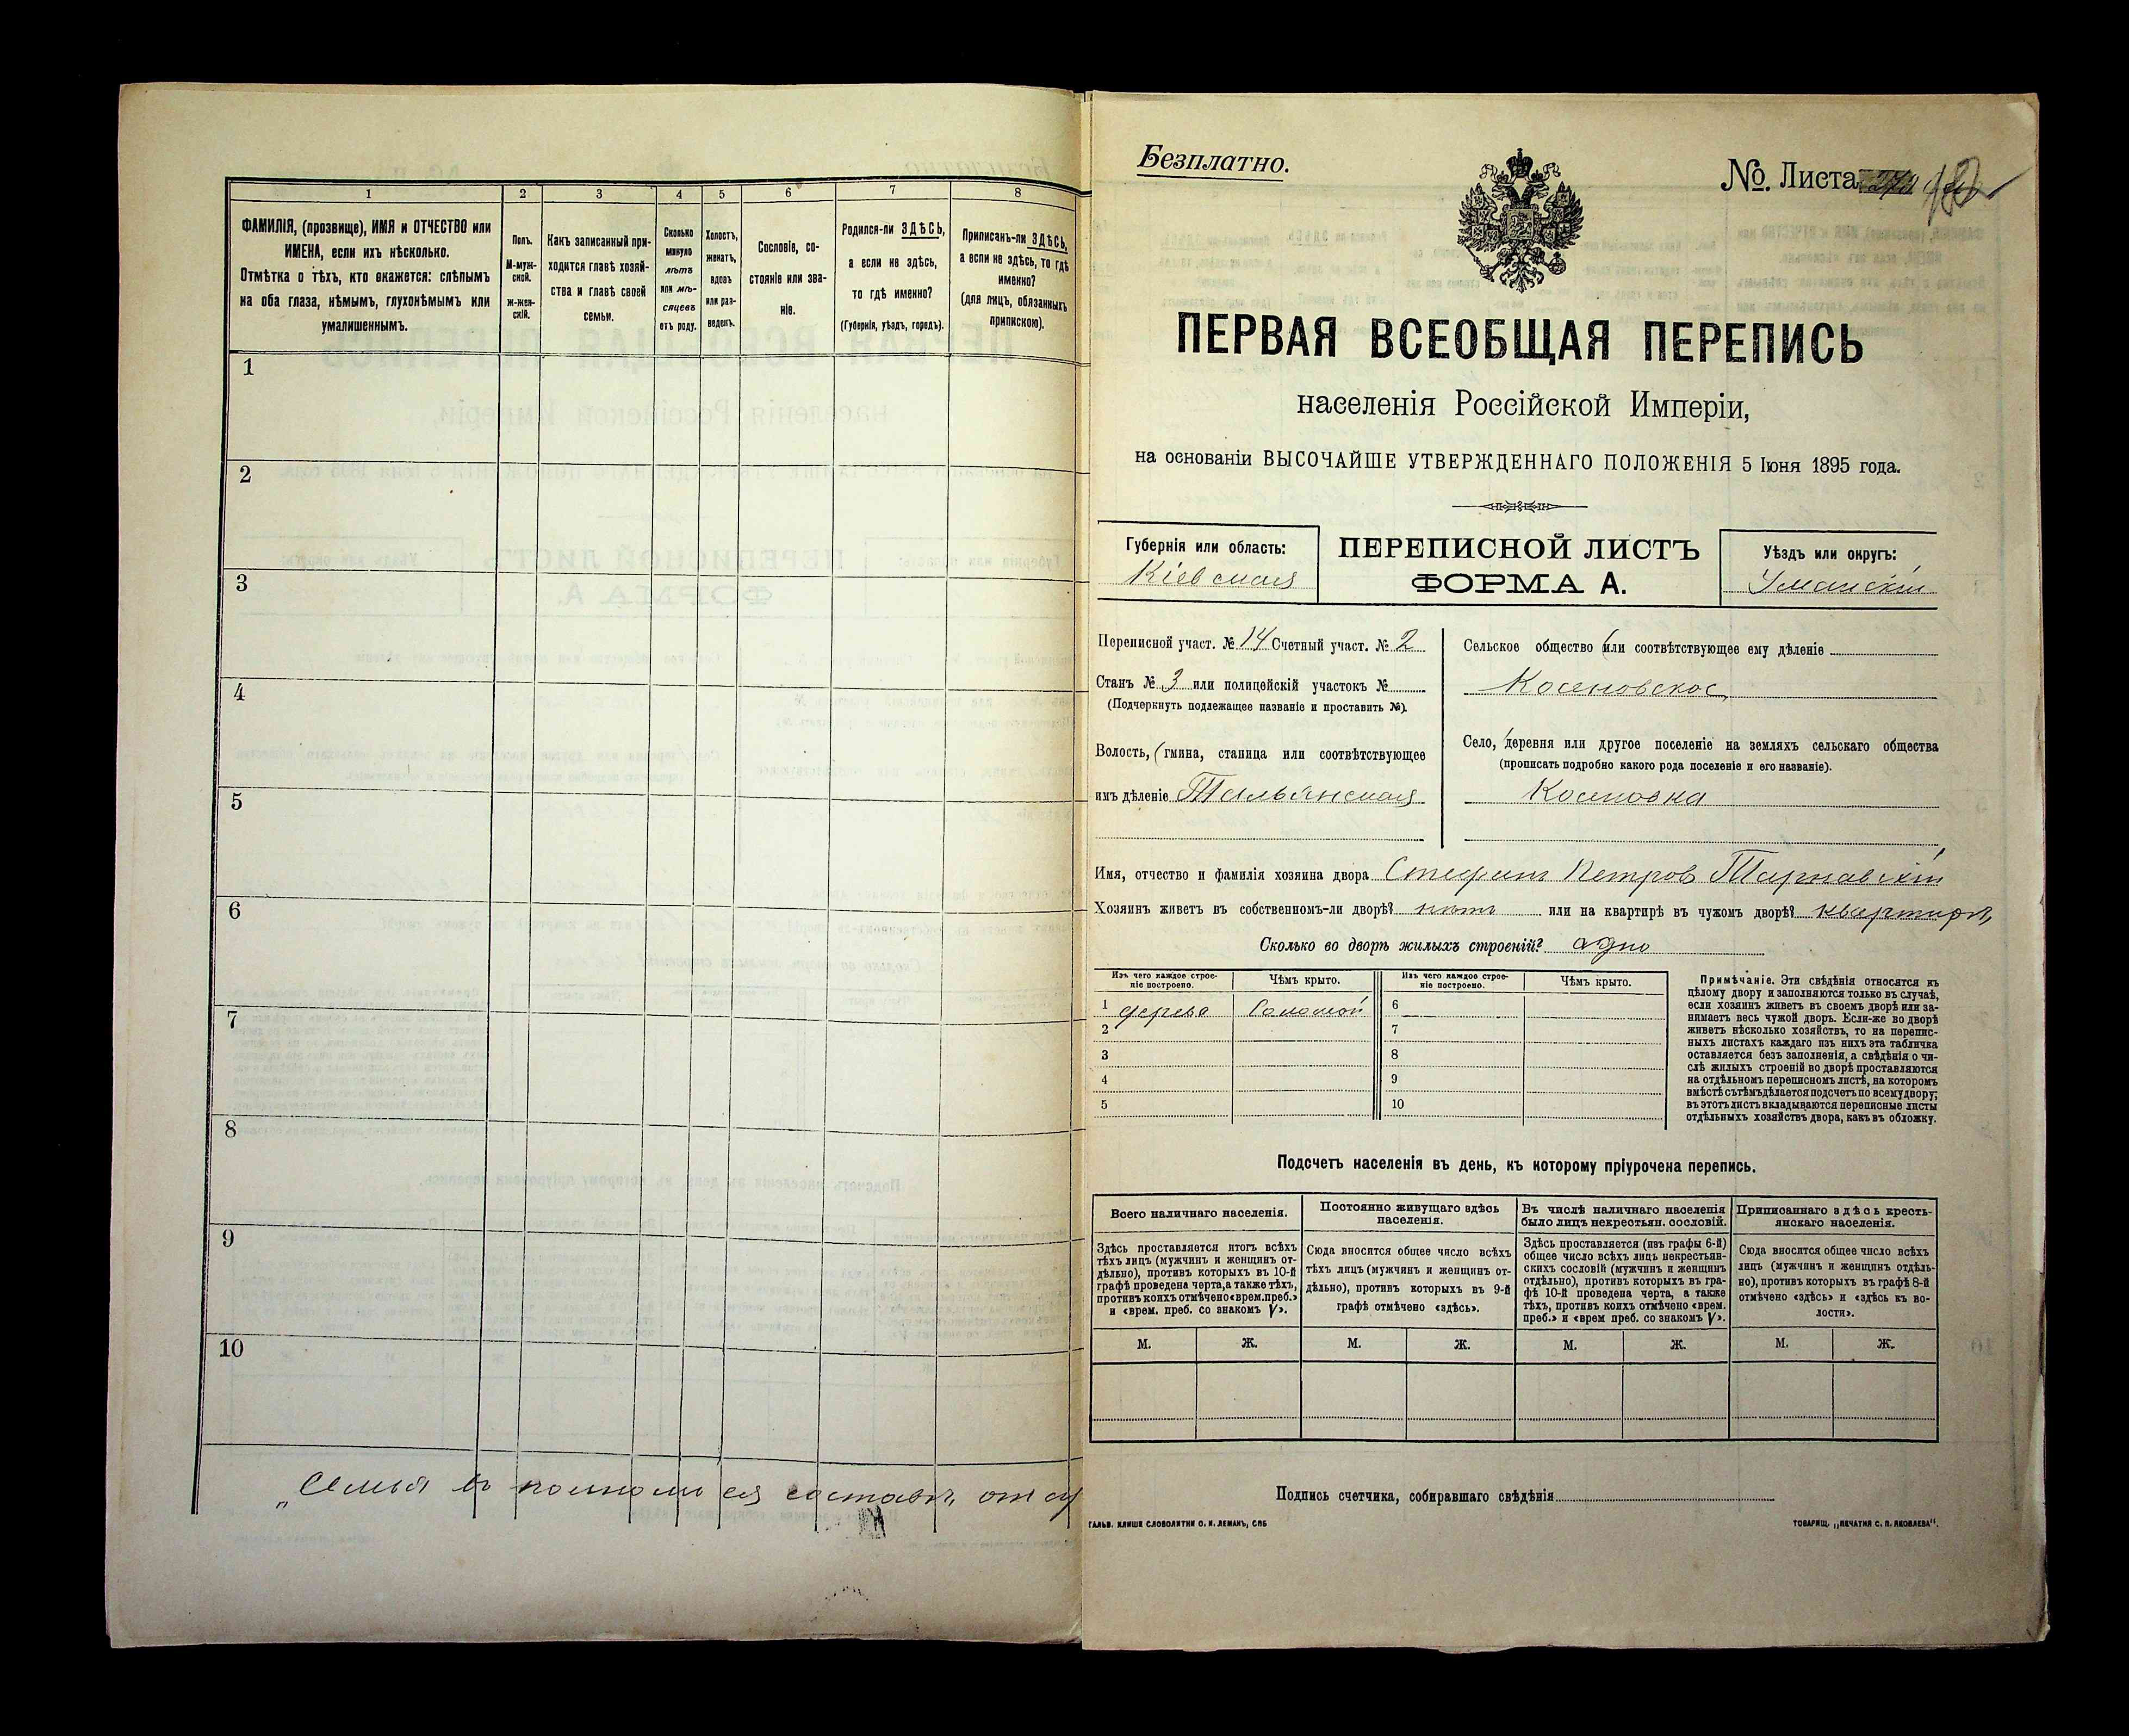 1 2 3 4 5 6 7 8
ФАМИЛІЯ, (прозвище), ИМЯ и ОТЧЕСТВО или
ИМЕНА, если ихъ нѣсколько.
Отмѣтка о тѣхъ, кто окажется: слѣпымъ
на оба глаза, нѣмымъ, глухонѣмымъ или
умалишеннымъ.
Полъ.
М-муж-
ской.
Ж-жен-
скій.
Какъ записанный при-
ходится главѣ хозяй-
ства и главѣ своей
семьи.
Сколько
минуло
лѣтъ
или мѣ-
сяцевъ
отъ роду.
Холостъ,
женатъ,
вдовъ
или раз-
веденъ.
Сословіе, со-
стояніе или зва-
ніе.
Родился-ли ЗДѢСЬ,
а если не здѣсь,
то гдѣ именно?
(Губернія, уѣздъ, городъ).
Приписанъ-ли ЗДѢСЬ,
а если не здѣсь, то гдѣ
именно?
(для лицъ, обязанныхъ
припискою).
1
2
3
4
5
6
7
8
9
10
„Семья въ полномъ ея составѣ, отсу
Безплатно.
№. Листа
ПЕРВАЯ ВСЕОБЩАЯ ПЕРЕПИСЬ
населенія Россійской Имперіи,
на основаніи ВЫСОЧАЙШЕ УТВЕРЖДЕННАГО ПОЛОЖЕНІЯ 5 Іюня 1895 года.
Губернія или область:
Кіевская
ПЕРЕПИСНОЙ ЛИСТЪ
ФОРМА А.
Уѣздъ или округъ:
Уманскій
Переписной участ. № 14 Счетный участ. № 2
Станъ № 3 или полицейскій участокъ №
(Подчеркнуть подлежащее названіе и проставить №).
Волость, (гмина, станица или соотвѣтствующее
имъ дѣленіе Тальянская
Сельское общество (или соотвѣтствующее ему дѣленіе
Косеновское
Село, (деревня или другое поселеніе на земляхъ сельскаго общества
(прописать подробно какого рода поселеніе и его названіе).
Косеновка
Имя, отчество и фамилія хозяина двора Стефанъ Петров Тарнавскій
Хозяинъ живетъ въ собственномъ-ли дворѣ? нѣтъ или на квартирѣ въ чужомъ дворѣ? квартирѣ
Сколько во дворѣ жилыхъ строеній? адно
Изъ чего каждое строе-
ніе построено.
Чѣмъ крыто.
Изъ чего каждое строе-
ніе построено.
Чѣмъ крыто.
1 дерева Соломой 6
2 7
3 8
4 9
5 10
Примѣчаніе. Эти свѣдѣнія относятся къ
цѣлому двору и заполняются только въ случаѣ,
если хозяинъ живетъ въ своемъ дворѣ или за-
нимаетъ весь чужой дворъ. Если-же во дворѣ
живетъ нѣсколько хозяйствъ, то на перепис-
ныхъ листахъ каждаго изъ нихъ эта табличка
оставляется безъ заполненія, а свѣдѣнія о чи-
слѣ жилыхъ строеній во дворѣ проставляются
на отдѣльномъ переписномъ листѣ, на которомъ
вмѣстѣ съ тѣмъ дѣлается подсчетъ по всему двору;
въ этотъ листъ вкладываются переписные листы
отдѣльныхъ хозяйствъ двора, какъ въ обложку.
Подсчетъ населенія въ день, къ которому пріурочена перепись.
Всего наличнаго населенія.
Здѣсь проставляется итогъ всѣхъ
тѣхъ лицъ (мужчинъ и женщинъ от-
дѣльно), противъ которыхъ въ 10-й
графѣ проведена черта, а также тѣхъ,
противъ коихъ отмѣчено «врем. преб.»
и «врем. преб. со знакомъ V».
Постоянно живущаго здѣсь
населенія.
Сюда вносится общее число всѣхъ
тѣхъ лицъ (мужчинъ и женщинъ от-
дѣльно), противъ которыхъ въ 9-й
графѣ отмѣчено «здѣсь».
Въ числѣ наличнаго населенія
было лицъ некрестьян. сословій.
Здѣсь проставляется (изъ графы 6-й)
общее число всѣхъ лицъ некрестьян-
скихъ сословій (мужчинъ и женщинъ
отдѣльно), противъ которыхъ въ гра-
фѣ 10-й проведена черта, а также
тѣхъ, противъ коихъ отмѣчено «врем.
преб.» и «врем преб. со знакомъ V».
Приписаннаго здѣсь кресть-
янскаго населенія.
Сюда вносится общее число всѣхъ
лицъ (мужчинъ и женщинъ отдѣль-
но), противъ которыхъ въ графѣ 8-й
отмѣчено «здѣсь» и «здѣсь къ во-
лости».
М. Ж. М. Ж. М. Ж. М. Ж.
Подпись счетчика, собиравшаго свѣдѣнія
ГАЛЬВ. КЛИШЕ СЛОВОЛИТНИ О. И. ЛЕМАНЪ, СПБ
ТОВАРИЩ. „ПЕЧАТНЯ С. П. ЯКОВЛЕВА".